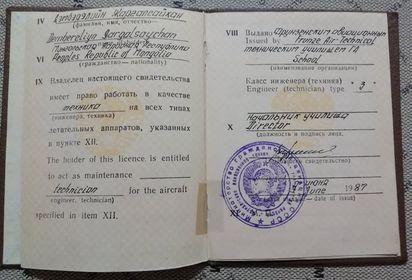 IV
(фамилия, имя, отчество)
VI Peoples Republic of Mongolia
(гражданство — nationality)
IX Владелец настоящего свидетельства
имеет право работать в качестве
техника на всех типах
(инженера, техника)
летательных аппаратов, указанных
в пункте XII.
The holder of this licence is entitled
to act as maintenance
technician for the aircraft
engineer, technician)
specified in item XII.
VIII Выдано Фрунзенским авиационным
Issued by Frunze Air Technical
техническим училищем ГА
School
(наименование организации)
Класс инженера (техника)
Engineer (technician) type "3"
Начальник училища
X Director
(должность и подпись лица,
свидетельство)
июня 1987
June
date of issue)